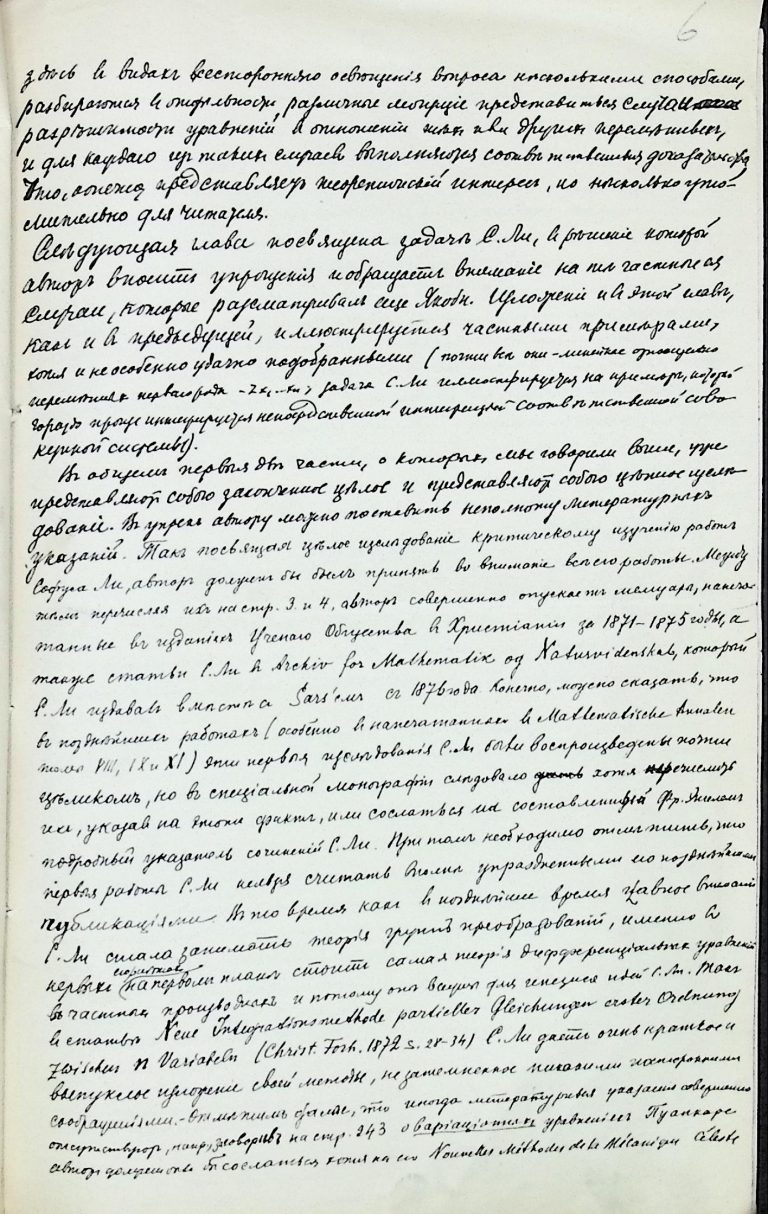 6
здѣсь въ видахъ всесторонняго освѣщенія вопроса нѣсколькими способами,
разбираются въ отдѣльности различные могущіе представиться случаи
разрѣшимости уравненій въ отношеніи тѣхъ или другихъ перемѣнныхъ,
и для каждаго изъ такихъ случаевъ выполняются соотвѣтственныя доказательства
Это, конечно, представляетъ теоретическій интересъ, но нѣсколько уто-
мительно для читателя.
Слѣдующая глава посвящена задачѣ С. Ли, въ рѣшеніе которой
авторъ вноситъ упрощенія и обращаетъ вниманіе на тѣ частные ея
случаи, которые разсматривалъ еще Якоби. Изложеніе и въ этой главѣ,
какъ и въ предъидущей, иллюстрируется частными примѣрами,
хотя и не особенно удачно подобранными (почти всѣ они – линейные относительно
перемѣнныхъ перваго рода задача С. Ли иллюстрируется на примѣрѣ, который
гораздо проще интегрируется непосредственной интеграціей соотвѣтственной сово-
купной системы).
Въ общемъ первыя двѣ части, о которыхъ мы говорили выше, уже
представляютъ собою законченное цѣлое и представляютъ собою цѣнное изслѣ-
дованіе. Въ упрекъ автору можно поставить неполноту литературныхъ
указаній. Такъ посвящая цѣлое изслѣдованіе критическому изученію работъ
Софуса Ли, авторъ долженъ бы былъ принять во вниманіе всѣ его работы. Между
тѣмъ перечисляя ихъ на стр. 3. и 4, авторъ совершенно опускаетъ мемуары, напеча-
танные въ изданіяхъ Ученаго Общества въ Христіаніи за 1871–1875 годы, а
также статьи С. Ли въ Archiv for Mathematik og Naturvidenskab, который
С. Ли издавалъ вмѣстѣ съ Sars'емъ съ 1876 года. Конечно, можно сказать, что
въ позднѣйшихъ работахъ (особенно въ напечатанныхъ въ Mathematische Annalen
томы VIII, IX и XI) эти первыя изслѣдованія С. Ли были воспроизведены почти
цѣликомъ, но въ спеціальной монографіи слѣдовало хотя перечислить
ихъ, указавъ на этотъ фактъ, или сослаться на составленный Фр. Энгелемъ
подробный указатель сочиненій С. Ли. При томъ необходимо отмѣтить, что
первыя работы С. Ли нельзя считать вполнѣ упраздненными его позднѣйшими
публикаціями. Въ то время какъ въ позднѣйшее время главное вниманіе
С. Ли стала занимать теорія группъ преобразованій, именно въ
первыхъ на первомъ планѣ стоитъ самая теорія дифференціальныхъ уравненій
въ частныхъ производныхъ и потому онѣ важны для генезиса идей С. Ли. Такъ
въ статьѣ Neue Integrationsmethode partieller Gleichungen erster Ordnung
zwischen n Variabeln (Christ. Forh. 1872 s. 28-34) С. Ли даетъ очень краткое и
выпуклое изложеніе своей методы, не затемненное никакими посторонними
соображеніями. – Отмѣтимъ далѣе, что иногда литературныя указанія совершенно
отсутствуютъ, напр., заговоривъ на стр. 243 о варіаціонныхъ уравненіяхъ Пуанкаре
авторъ долженъ бы сослаться хотя на его Nouvelles Méthodes de la Mécanique Céleste